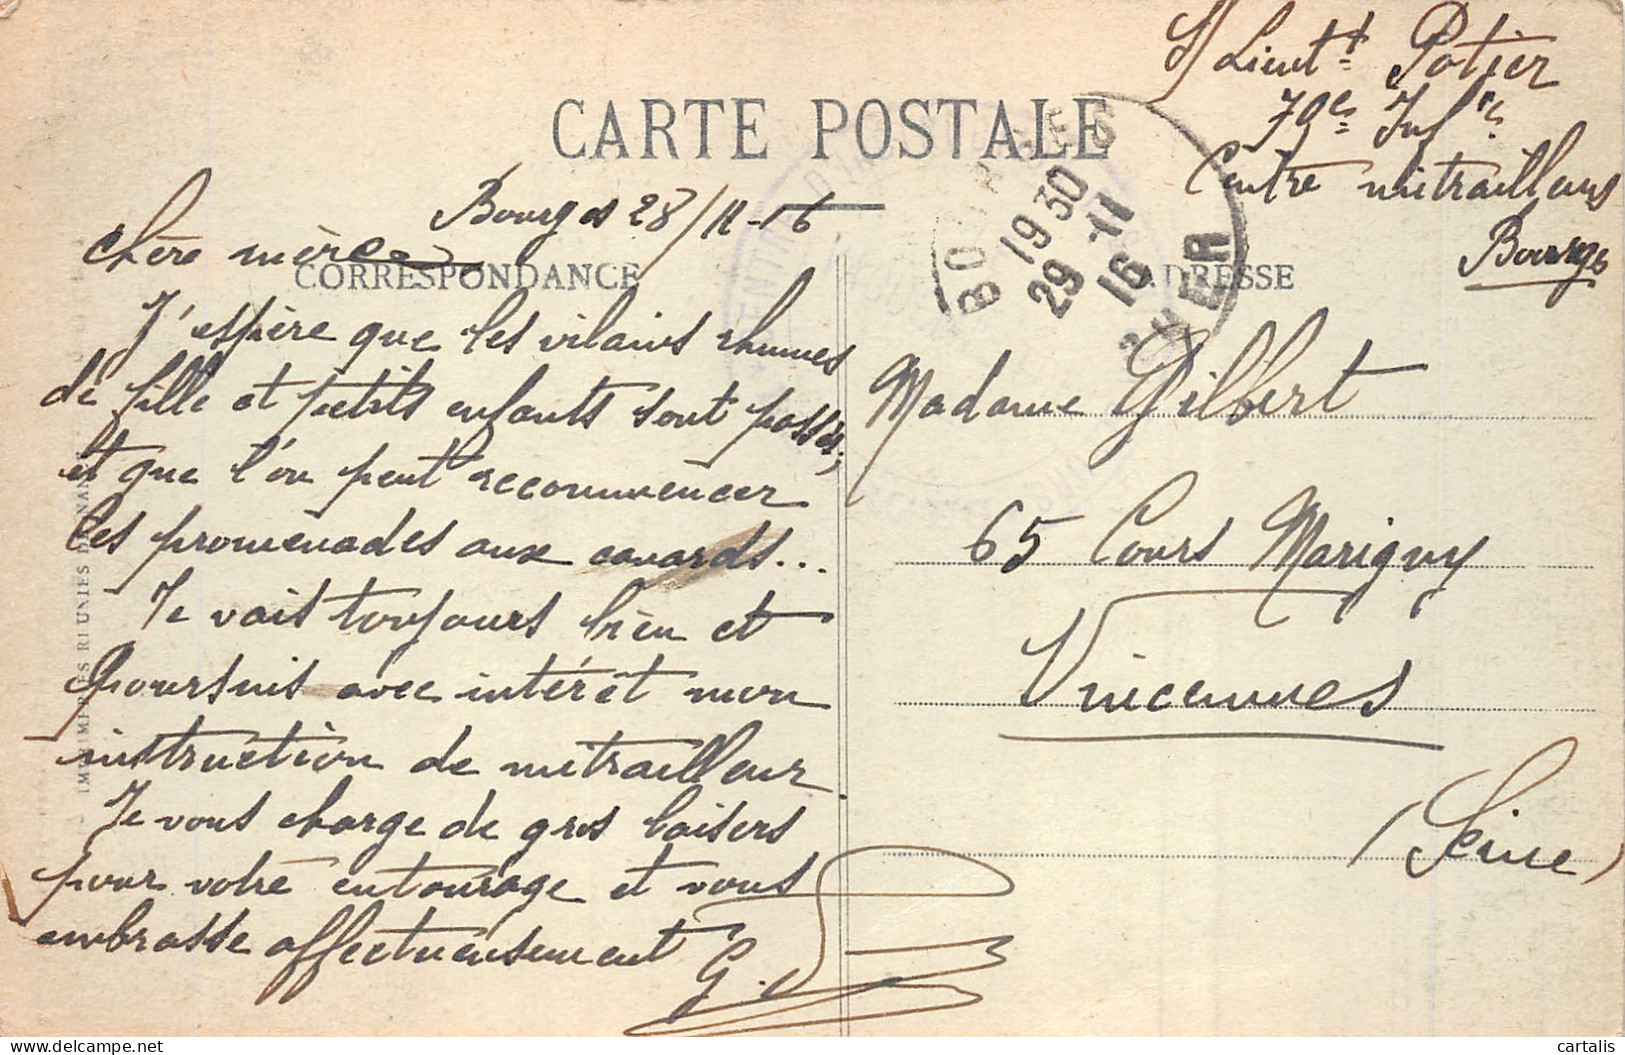 S/Lieutt Potier
79e Infie
Centre mitrailleurs
Bourges
CARTE POSTALE
Bourges 28/11-16
BOURGES
19 30
29 -11
16
CHER
CORRESPONDANCE
ADRESSE
Chère mère
J'espère que les vilains rhumes
de fille et petits enfants sont passés,
et que l'on peut recommencer
les promenades aux canards...
Je vais toujours bien et
poursuis avec intérêt mon
instruction de mitrailleur
Je vous charge de gros baisers
pour votre entourage et vous
embrasse affectueusement
G.
Madame Gilbert
65 Cours Marigny
Vincennes
(Seine)
IMPRIMERIES RÉUNIES DE NANCY
cartalis